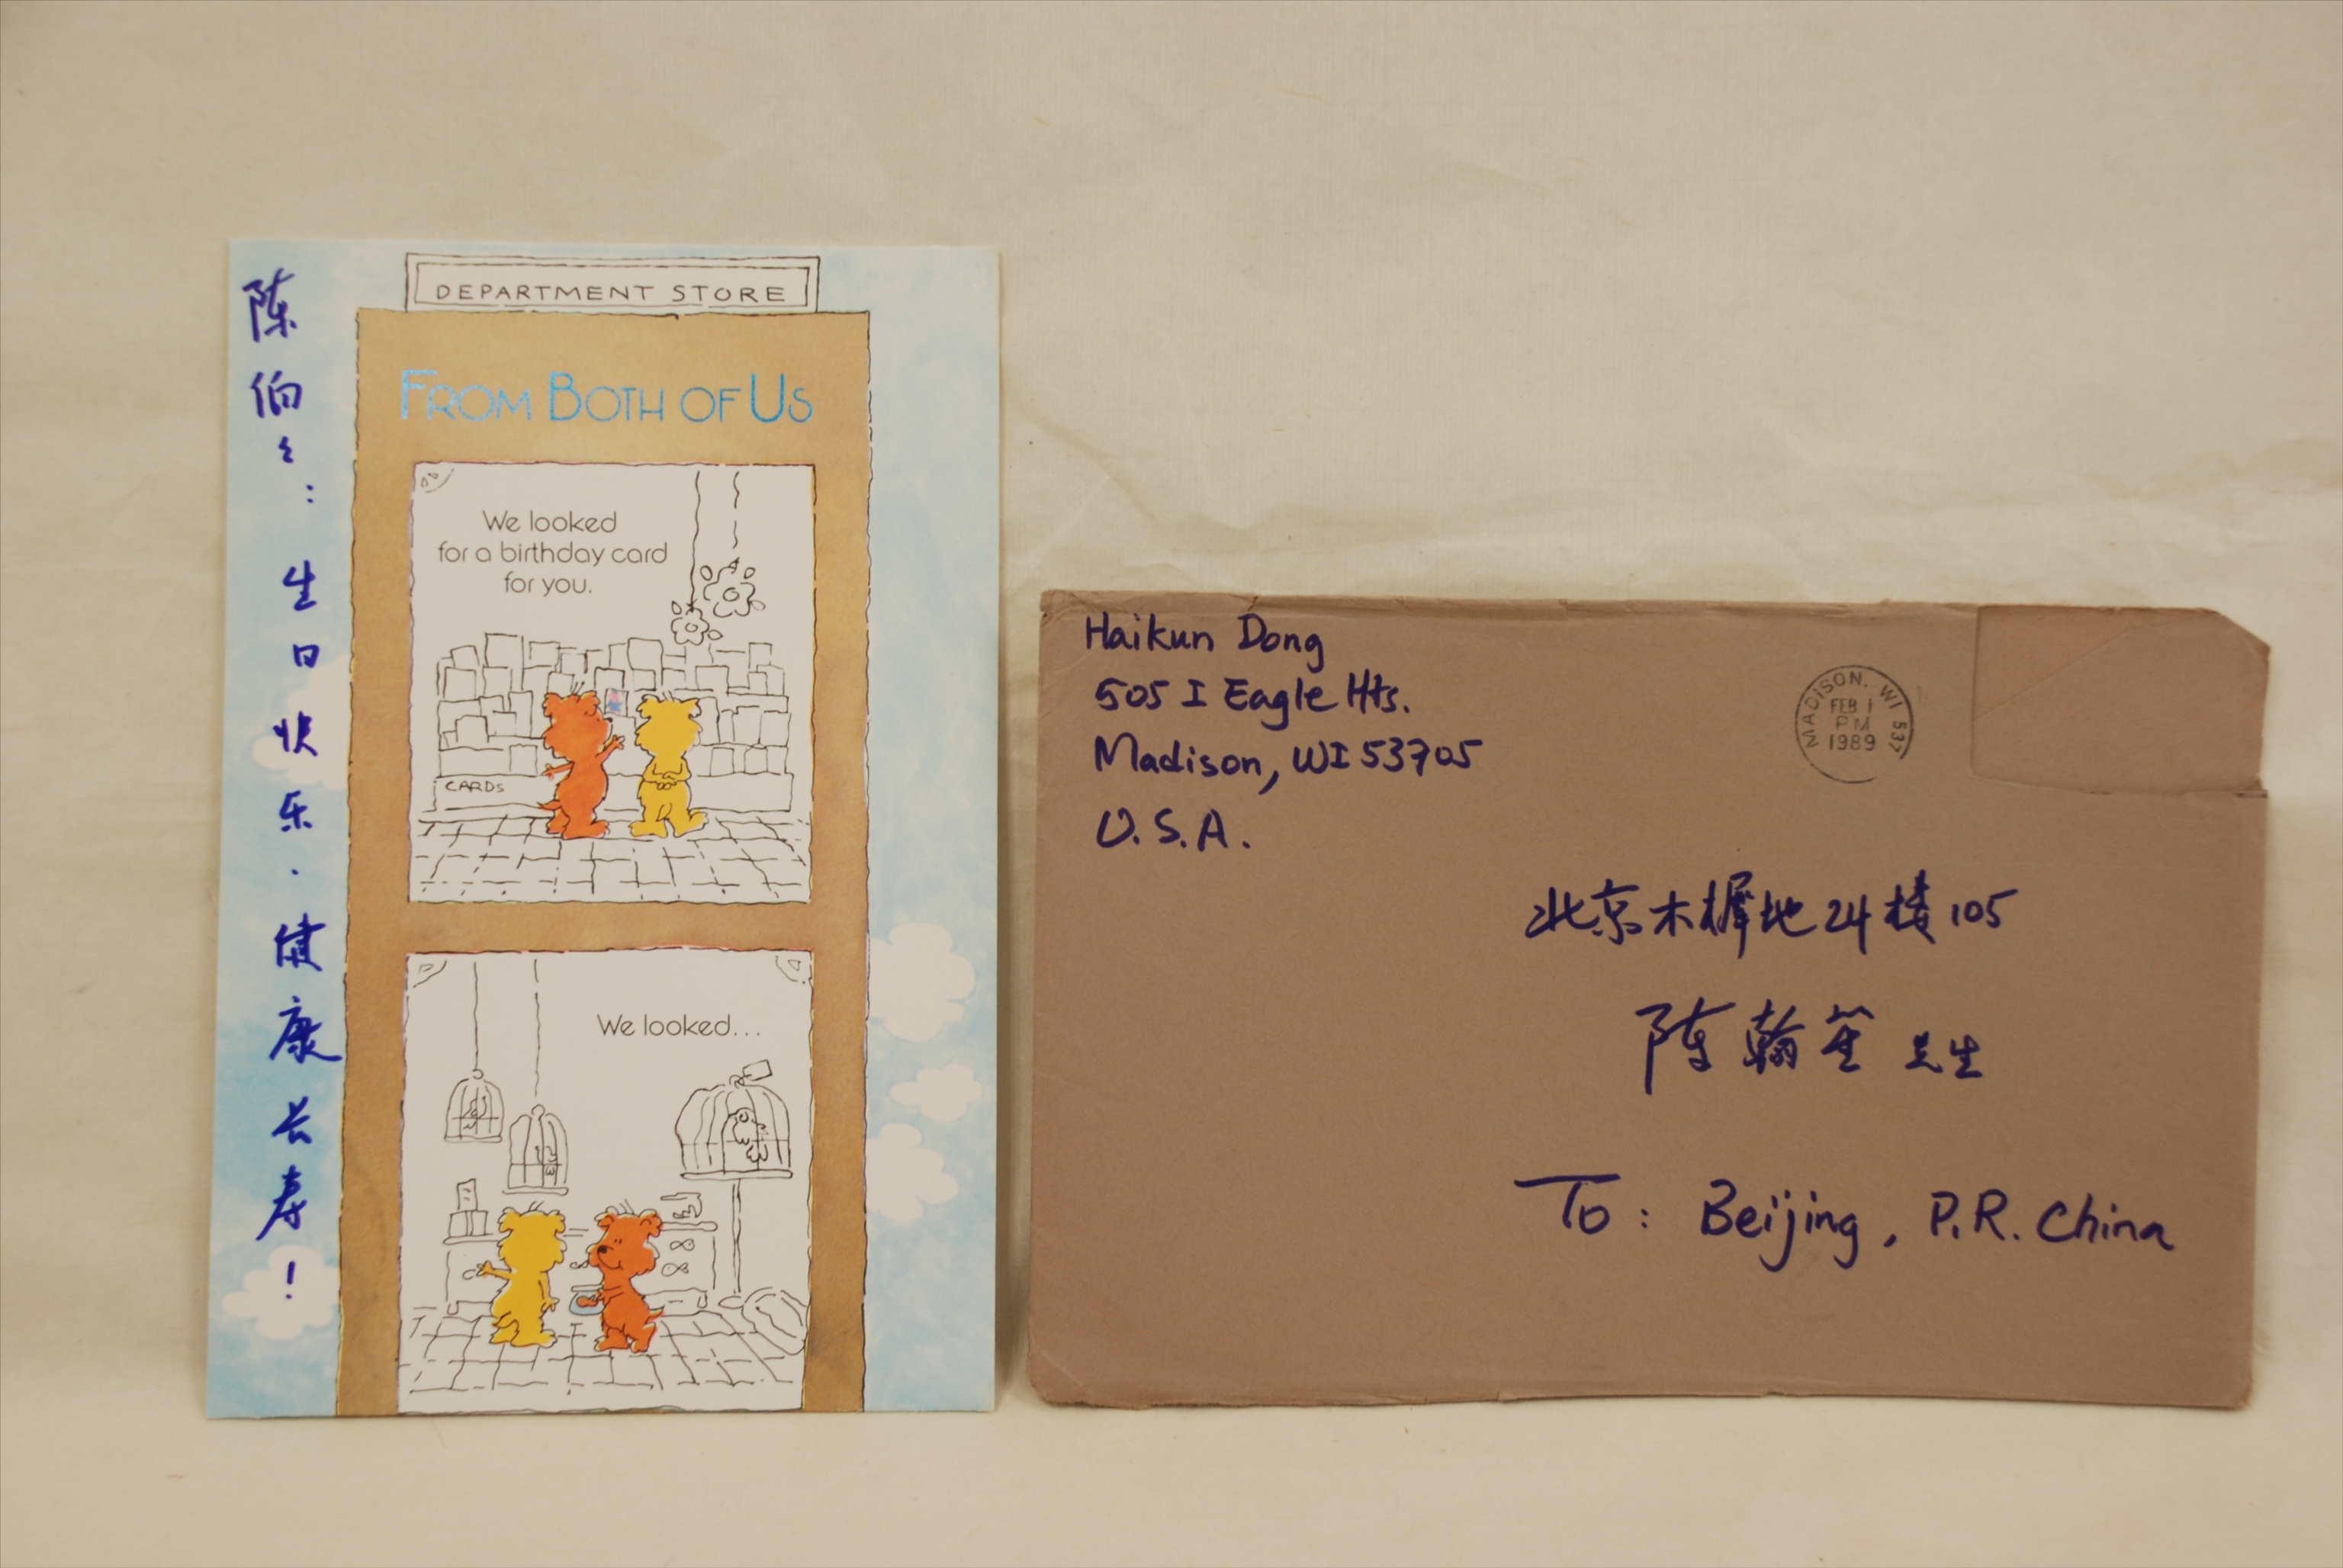 陈伯〻：生日快乐·健康长寿！
DEPARTMENT STORE
FROM BOTH OF US
We looked
for a birthday card
for you.
CARDS
We looked...
Haikun Dong
505 I Eagle Hts.
Madison, WI 53705
U.S.A.
MADISON, WI 537
FEB 1
PM
1989
北京木樨地24楼105
陈翰笙 先生
To: Beijing, P.R. China